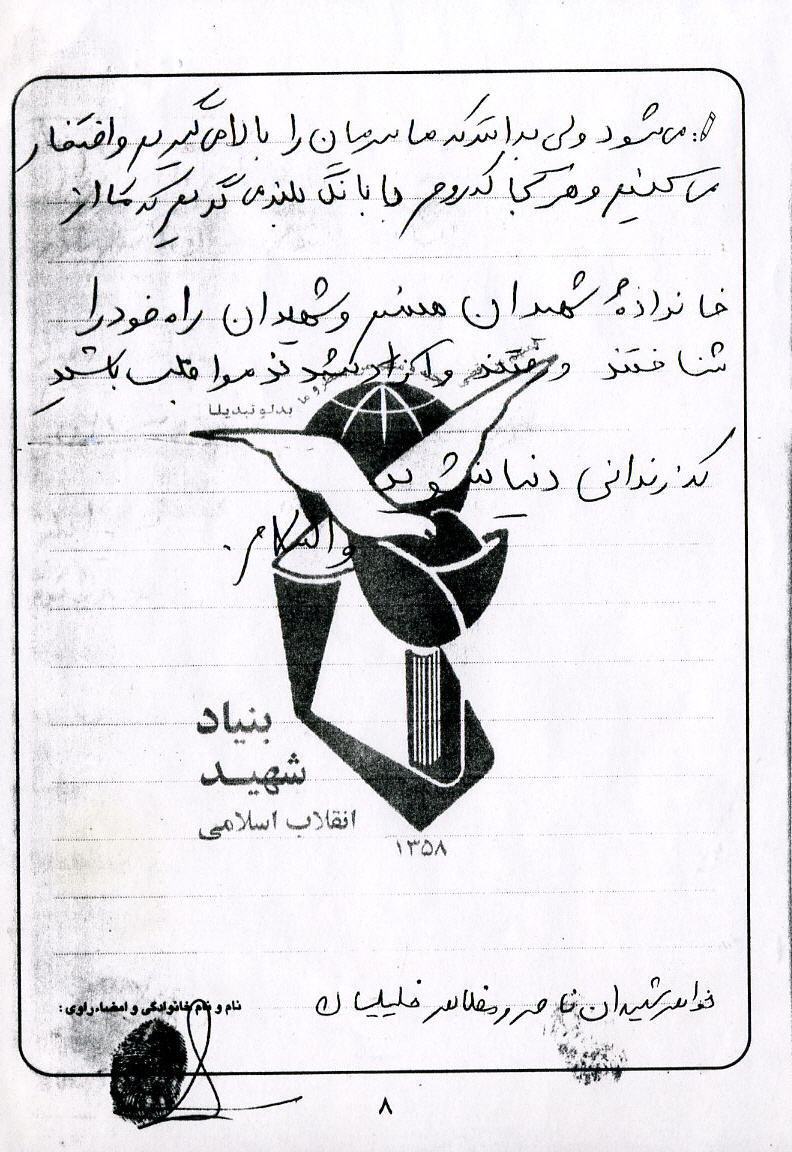 می شود ولی بدانند که ما سرمان را بالا می گیریم و افتخار
می کنیم و هر کجا که رویم با بانگ بلند می گوییم که ما از
خانوادهٔ شهیدان هستیم و شهیدان راه خود را
شناختند و رفتند و آزاد شدند مواظب باشید
بدلو تبدیلا
که زندانی دنیا نشوید
والسلام.
بنیاد
شهید
انقلاب اسلامی
۱۳۵۸
خواهر شهیدان ناصر و مظاهر خلیلیان
نام و نام خانوادگی و امضاء راوی:
۸